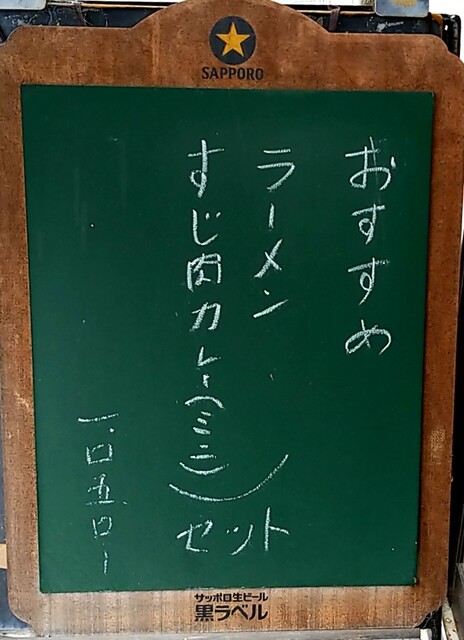 SAPPORO
おすすめ
ラーメン
すじ肉カレー(ミニ)
セット
一.〇五〇ー
サッポロ生ビール
黒ラベル